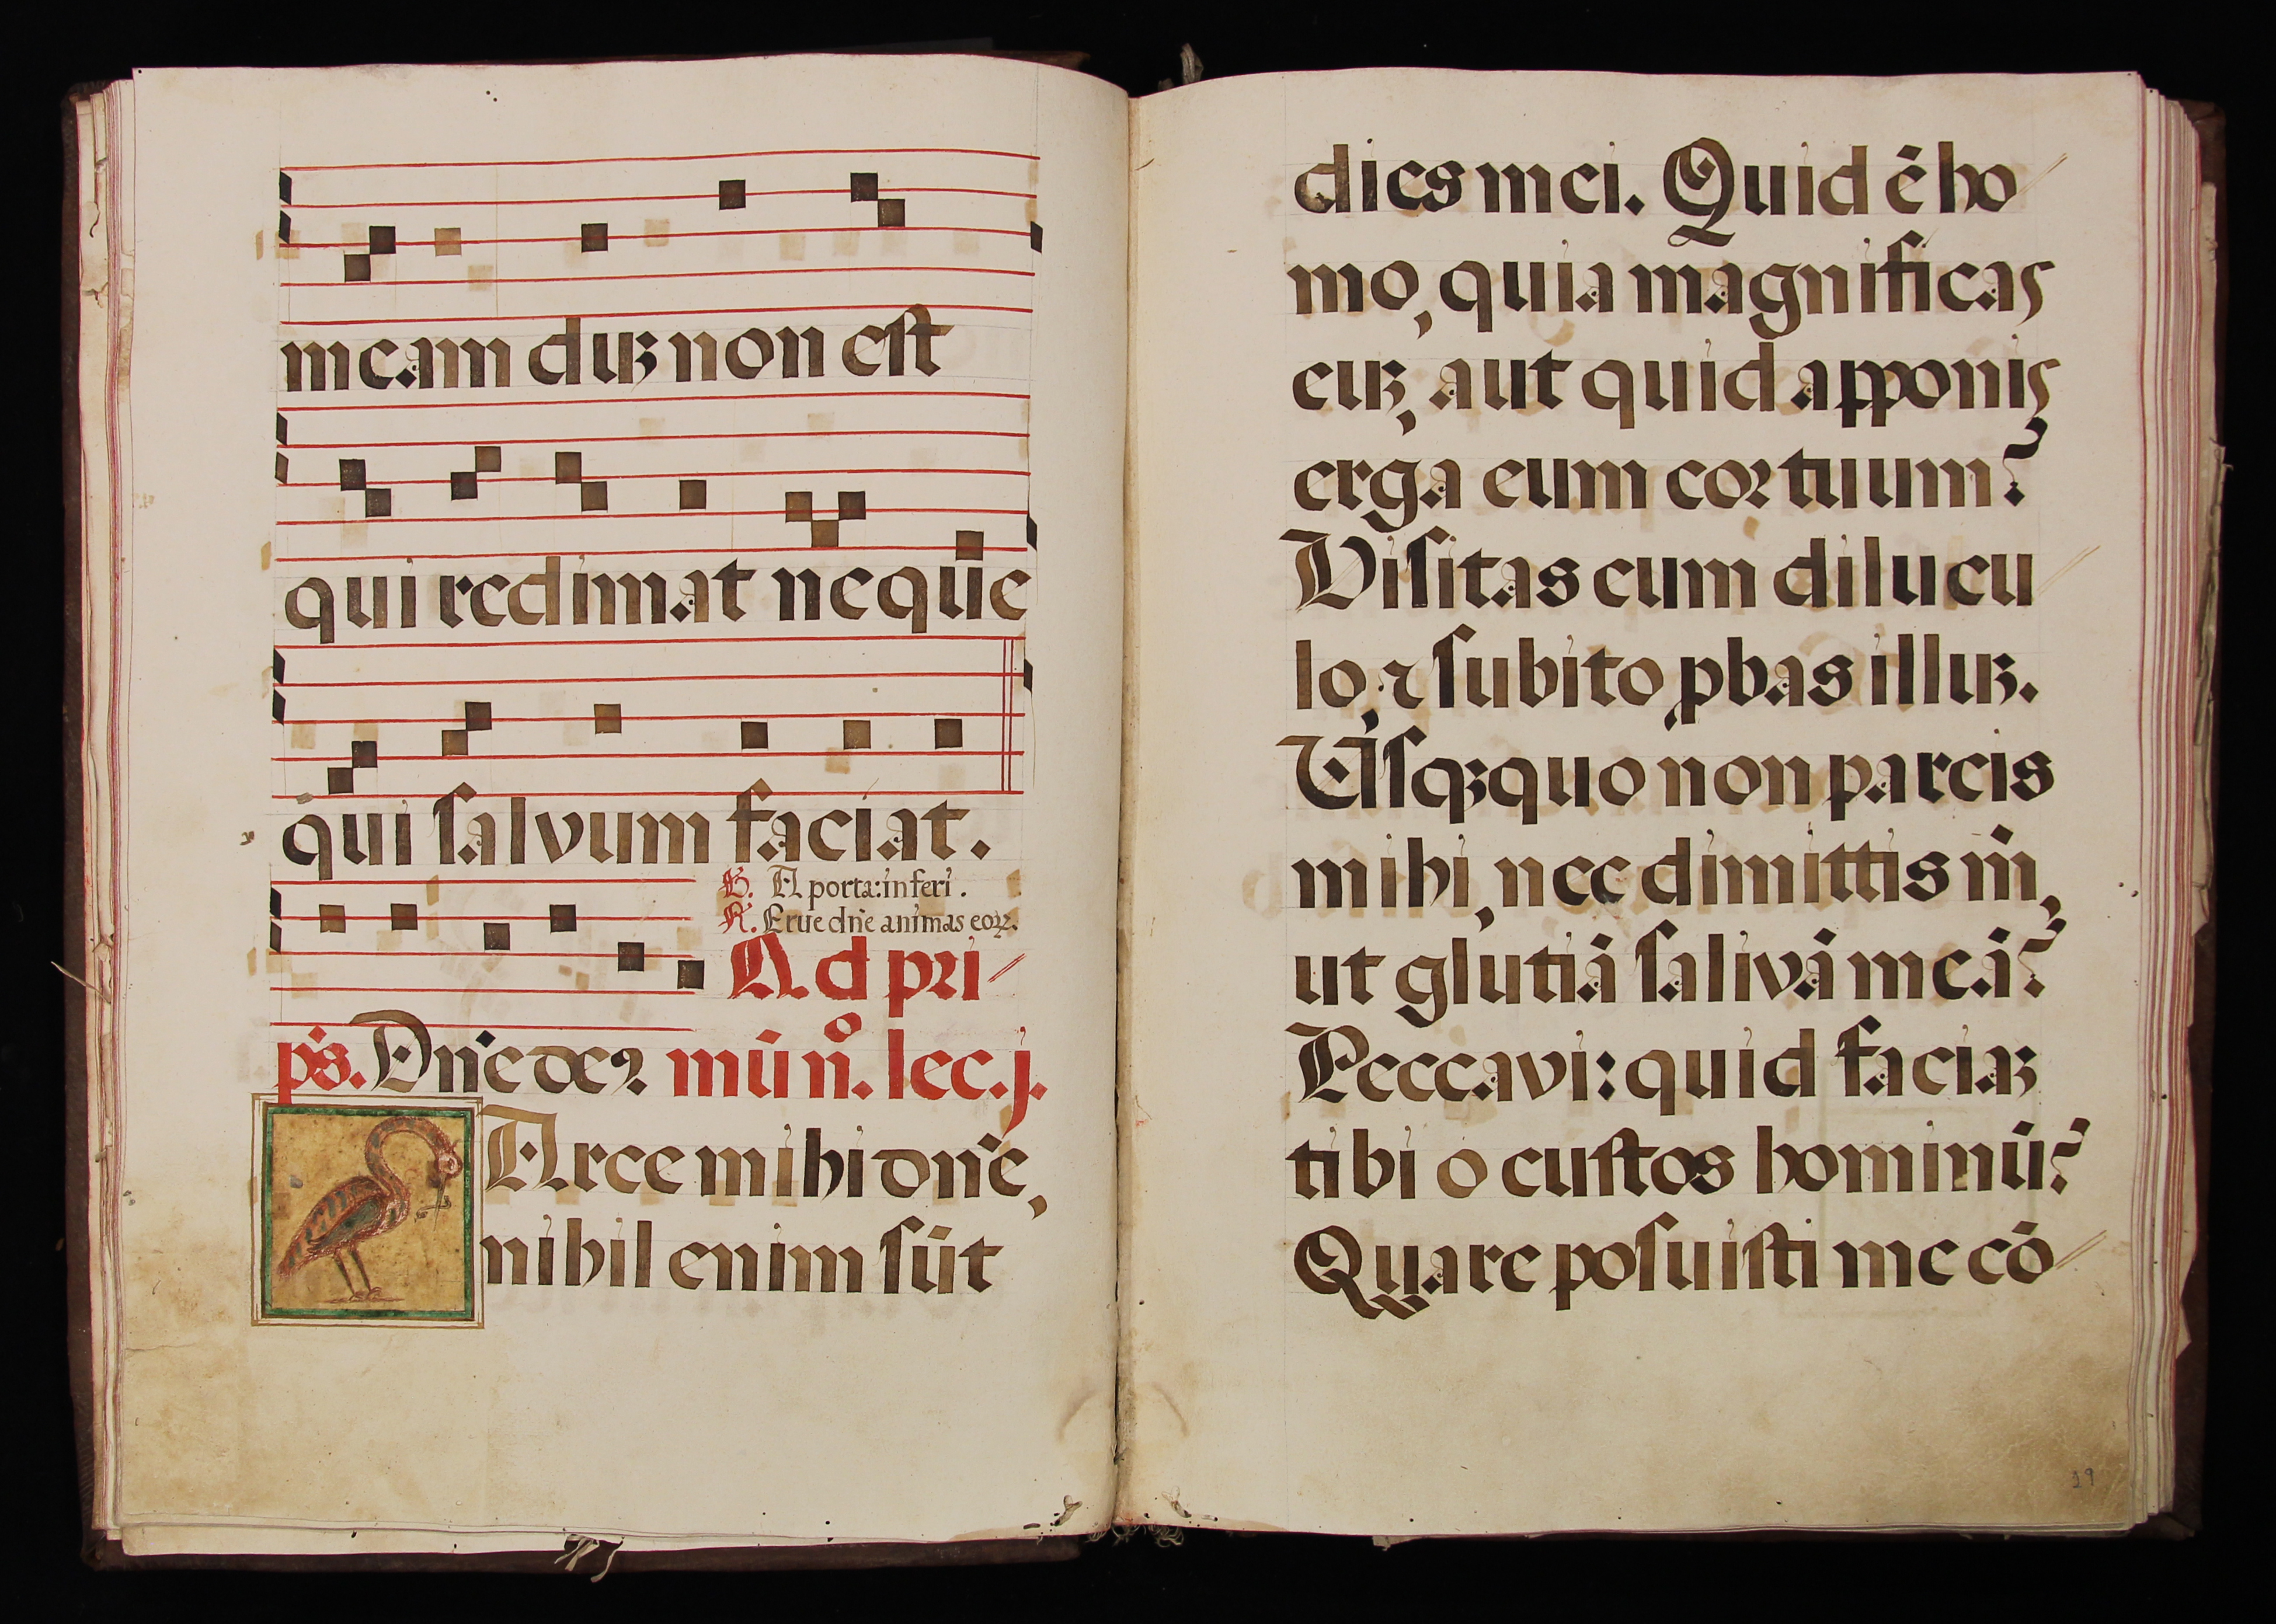 meam duꝫ non est
qui redimat neq̃ue
qui salvum faciat.
℣. A porta:inferi.
℟. Erue dñe animas eoꝝ.
Ad pri/
ps. Dñe deꝰ mū nº. lec. j.
Arce mihi dñe,
nihil enim sūt
dies mei. Quid ē ho/
mo, quia magnificas
euꝫ, aut quid apponis
erga eum cor tuum?
Visitas eum dilucu/
lo, ⁊ subito ꝓbas illuꝫ.
Usqꝫquo non parcis
mihi, nec dimittis m̄,
ut glutiā salivā meā?
Peccavi: quid faciaꝫ
tibi o custos hominū?
Quare posuisti me cō/
19